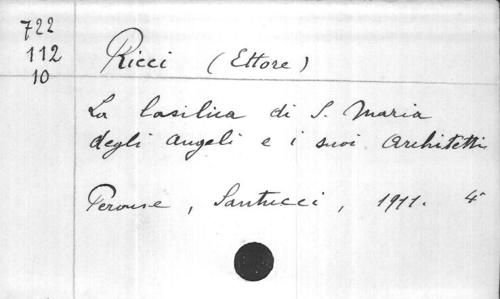 722
112
10
Ricci (Ettore)
La basilica di S. Maria
degli Angeli e i suoi Architetti
Perouse, Santucci, 1911. 4°